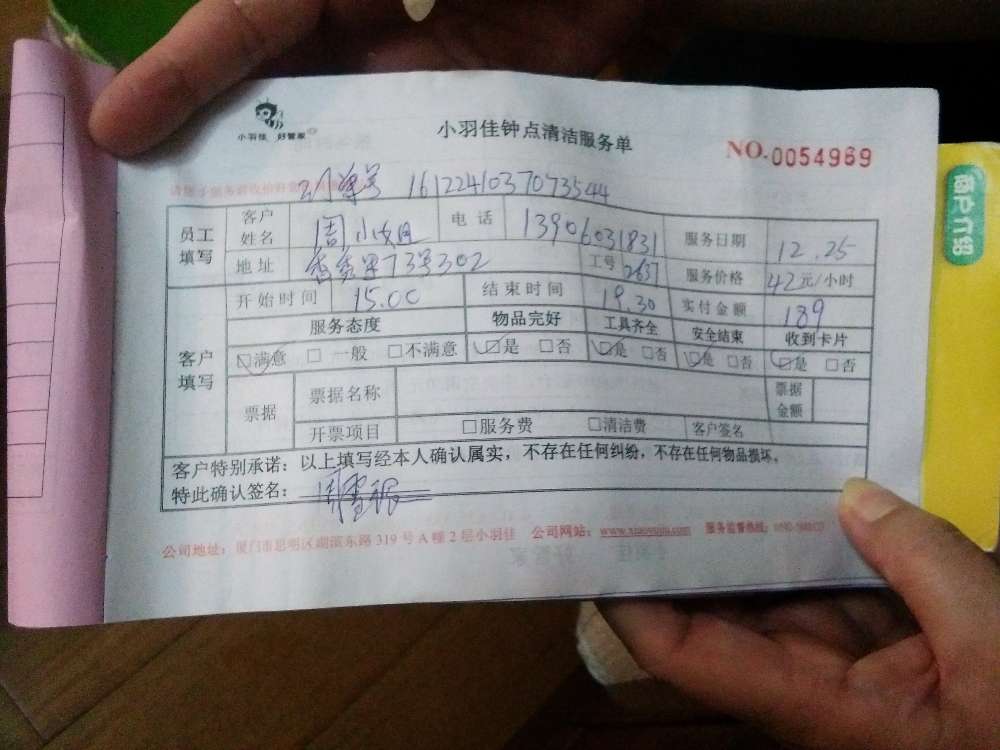 小羽佳 好管家
小羽佳钟点清洁服务单
NO.0054969
订单号 1612241037073544
员工填写 客户姓名 周小姐 电话 13906031831 服务日期 12.25
地址 73号302 工号 2637 服务价格 42元/小时
客户填写 开始时间 15.00 结束时间 19.30 实付金额 189
服务态度 物品完好 工具齐全 安全结束 收到卡片
☑满意 □一般 □不满意 ☑是 □否 ☑是 □否 ☑是 □否 ☑是 □否
票据 票据名称 票据金额
开票项目 □服务费 □清洁费 客户签名
客户特别承诺：以上填写经本人确认属实，不存在任何纠纷，不存在任何物品损坏。
特此确认签名：
公司地址：厦门市思明区湖滨东路 319 号 A 幢 2 层小羽佳 公司网站： 服务监督热线：
商户介绍